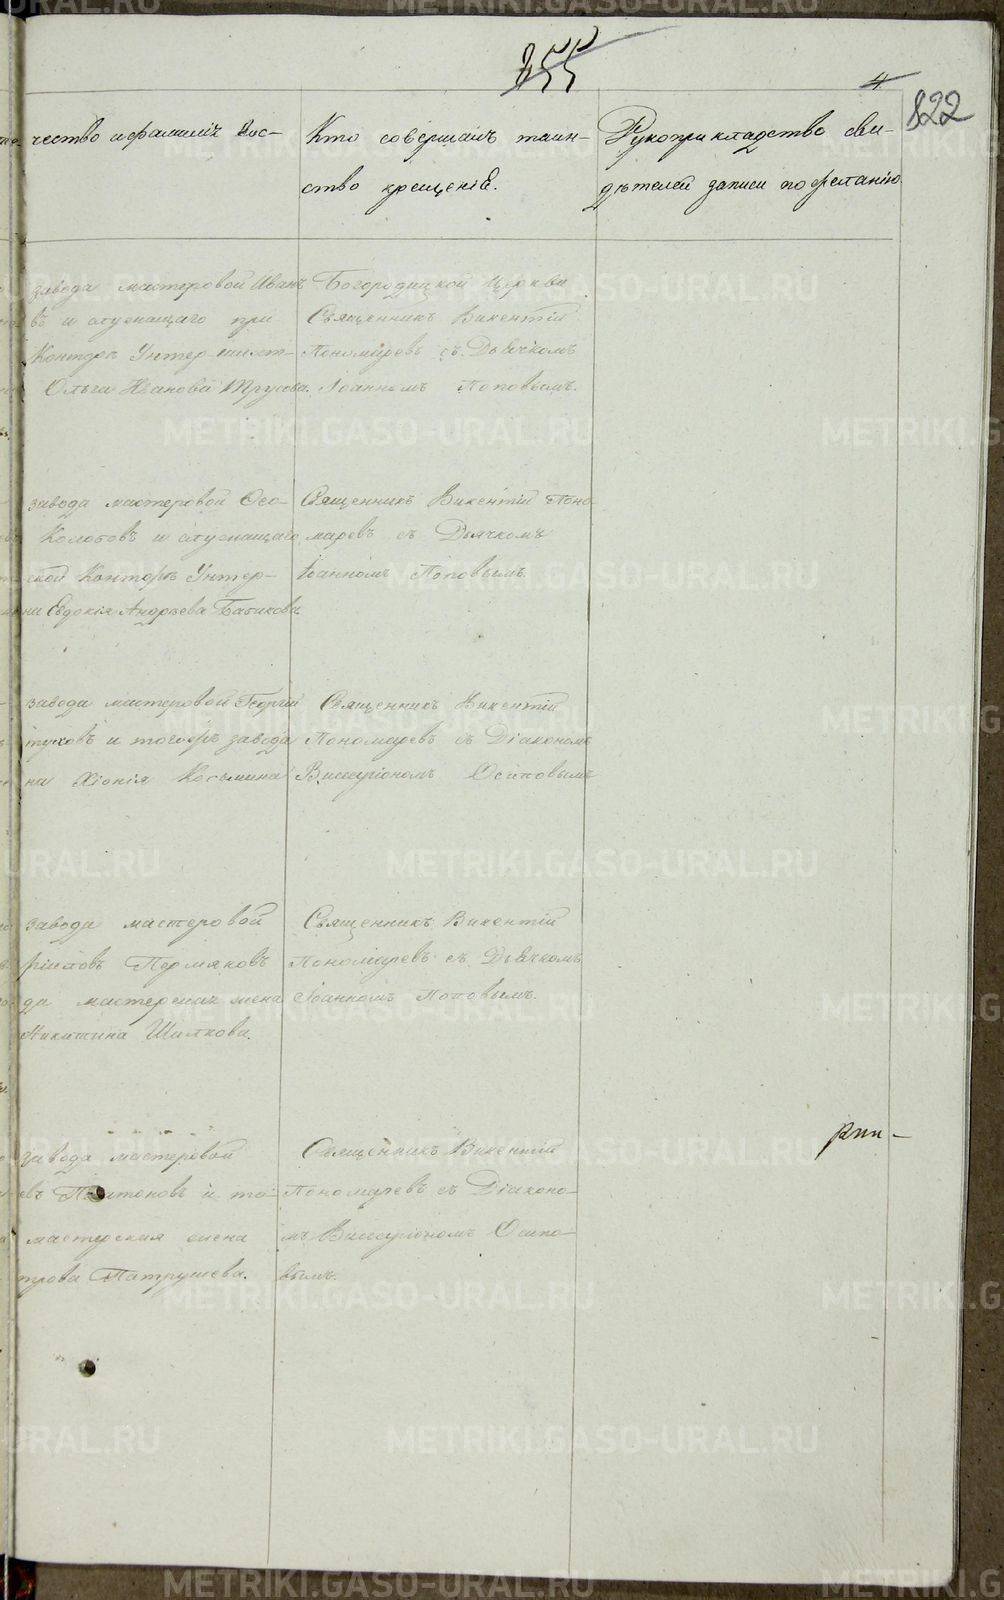 355
4
822
чество и фамилія вос-
Кто совершалъ таин-
ство крещенія.
Рукоприкладство сви-
дѣтелей записи по желанію.
завода мастеровой Иванъ
въ и служащаго при
Конторѣ Унтер шихт-
Ольга Иванова Трусова.
Богородицкой Церкви
Священникъ Викентій
Пономаревъ съ Дьячкомъ
Іоанномъ Поповымъ.
завода мастеровой
Колобовъ и служащаго
ской Конторѣ Унтер-
Евдокія Андреева
Священникъ Викентій Поно
маревъ съ Дьячкомъ
Іоанномъ Поповымъ.
завода мастеровой Георгій
туховъ и тогожъ завода
на Хіонія Косьмина
Священникъ Викентій
Пономаревъ съ Діакономъ
Виссаріономъ Осиповымъ
завода мастеровой
Пермяковъ
да мастерская жена
Никитина Шилкова.
Священникъ Викентій
Пономаревъ съ Дьячкомъ
Іоанномъ Поповымъ.
завода мастеровой
евъ Платоновъ и то-
мастерская жена
трова Патрушева.
Священникъ Викентій
Пономаревъ съ Діаконо-
мъ Виссаріономъ Осипо-
вымъ.
METRIKI.GASO-URAL.RU